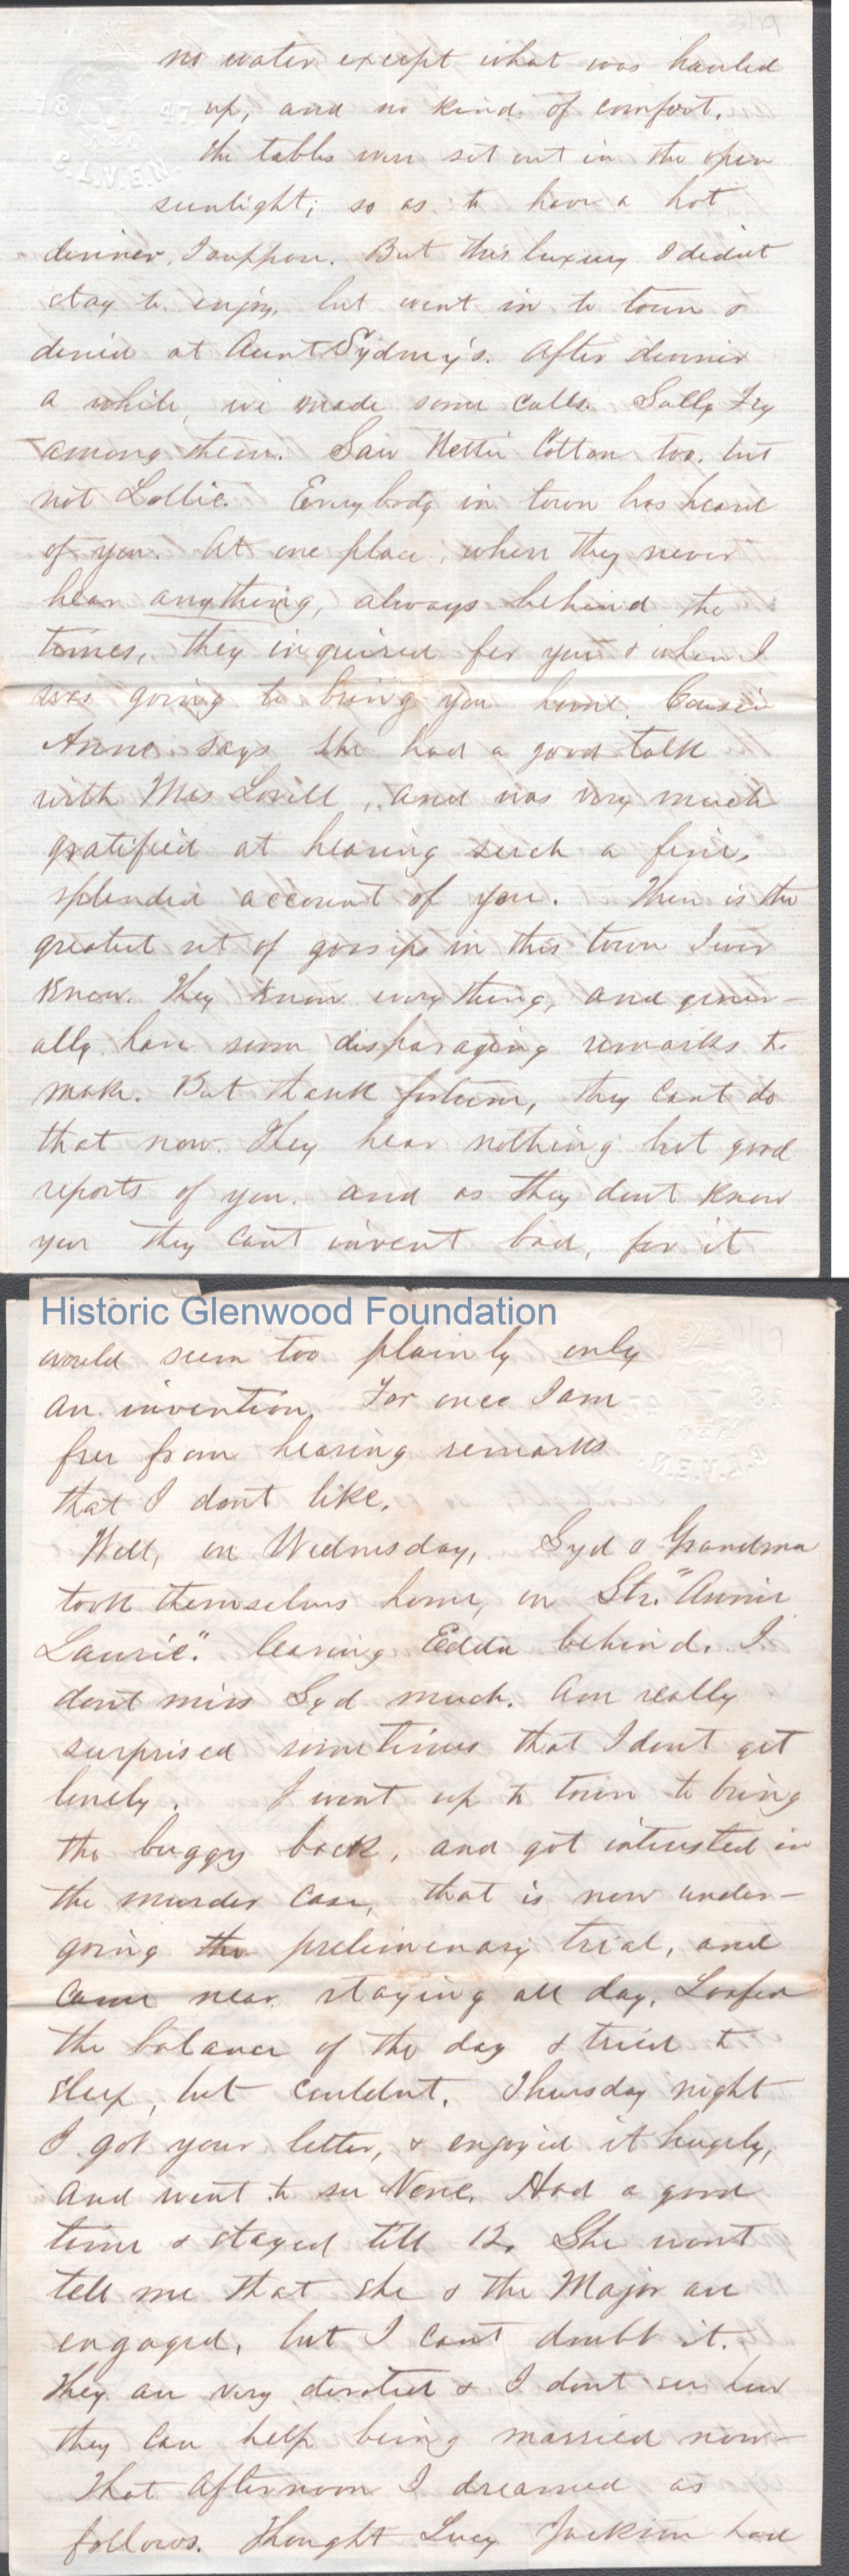 no water except what was hauled
up, and no kind of comfort.
The tables were set out in the open
sunlight; so as to have a hot
dinner, I suppose. But this luxury I didnt
stay to enjoy, but went in to town &
dined at Aunt Sydney's. After dinner
a while, we made some calls. Sally Fry
among them. Saw Nettie Cotton too, but
not Lollie. Everybody in town has heard
of you. At one place, where they never
hear anything, always behind the
times, they inquired for you & when I
was going to bring you home. Cousin
Anne says she had a good talk
with Mrs Lovell, and was very much
gratified at hearing such a fine,
splendid account of you. There is the
greatest set of gossips in this town I ever
knew. They know every thing, and gener-
ally have some disparaging remarks to
make. But thank fortune, they cant do
that now. They hear nothing but good
reports of you. and as they dont know
you they cant invent bad, for it
Historic Glenwood Foundation
would seem too plainly only
an invention. For once I am
free from hearing remarks
that I dont like.
Well, on Wednesday, Syd & Grandma
took themselves home, on Str. "Annie
Laurie". leaving Eddie behind. I
dont miss Syd much. Am really
surprised sometimes that I dont get
lonely. I went up to town to bring
the buggy back, and got interested in
the murder case, that is now under-
going the preliminary trial, and
came near staying all day. Loafed
the balance of the day & tried to
sleep, but couldnt. Thursday night
I got your letter, & enjoyed it hugely,
and went to see Nene. Had a good
time & stayed till 12. She wont
tell me that she & the Major are
engaged, but I cant doubt it.
They are very devoted & I dont see how
they can help being married now—
That afternoon I dreamed as
follows. Thought Lucy Jackson had